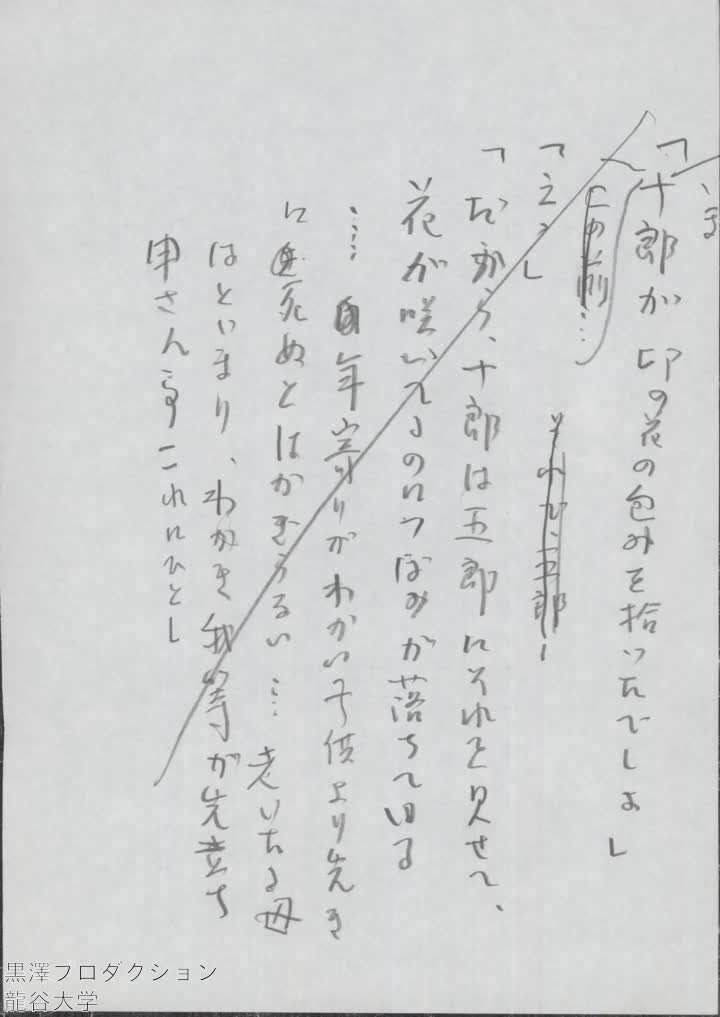 いる
「十郎が卯の花の包みを拾ったでしょ」
この前……
「えゝ」
それで、五郎
「だから、十郎は五郎にそれを見せて、
花が咲いてるのにつぼみが落ちている
……年寄りがわかい子供より先き
に死ぬとはかぎらない……老いたる母
はとゞまり、わかき我等が先立ち
申さん事これにひとし」
黒澤プロダクション
龍谷大学